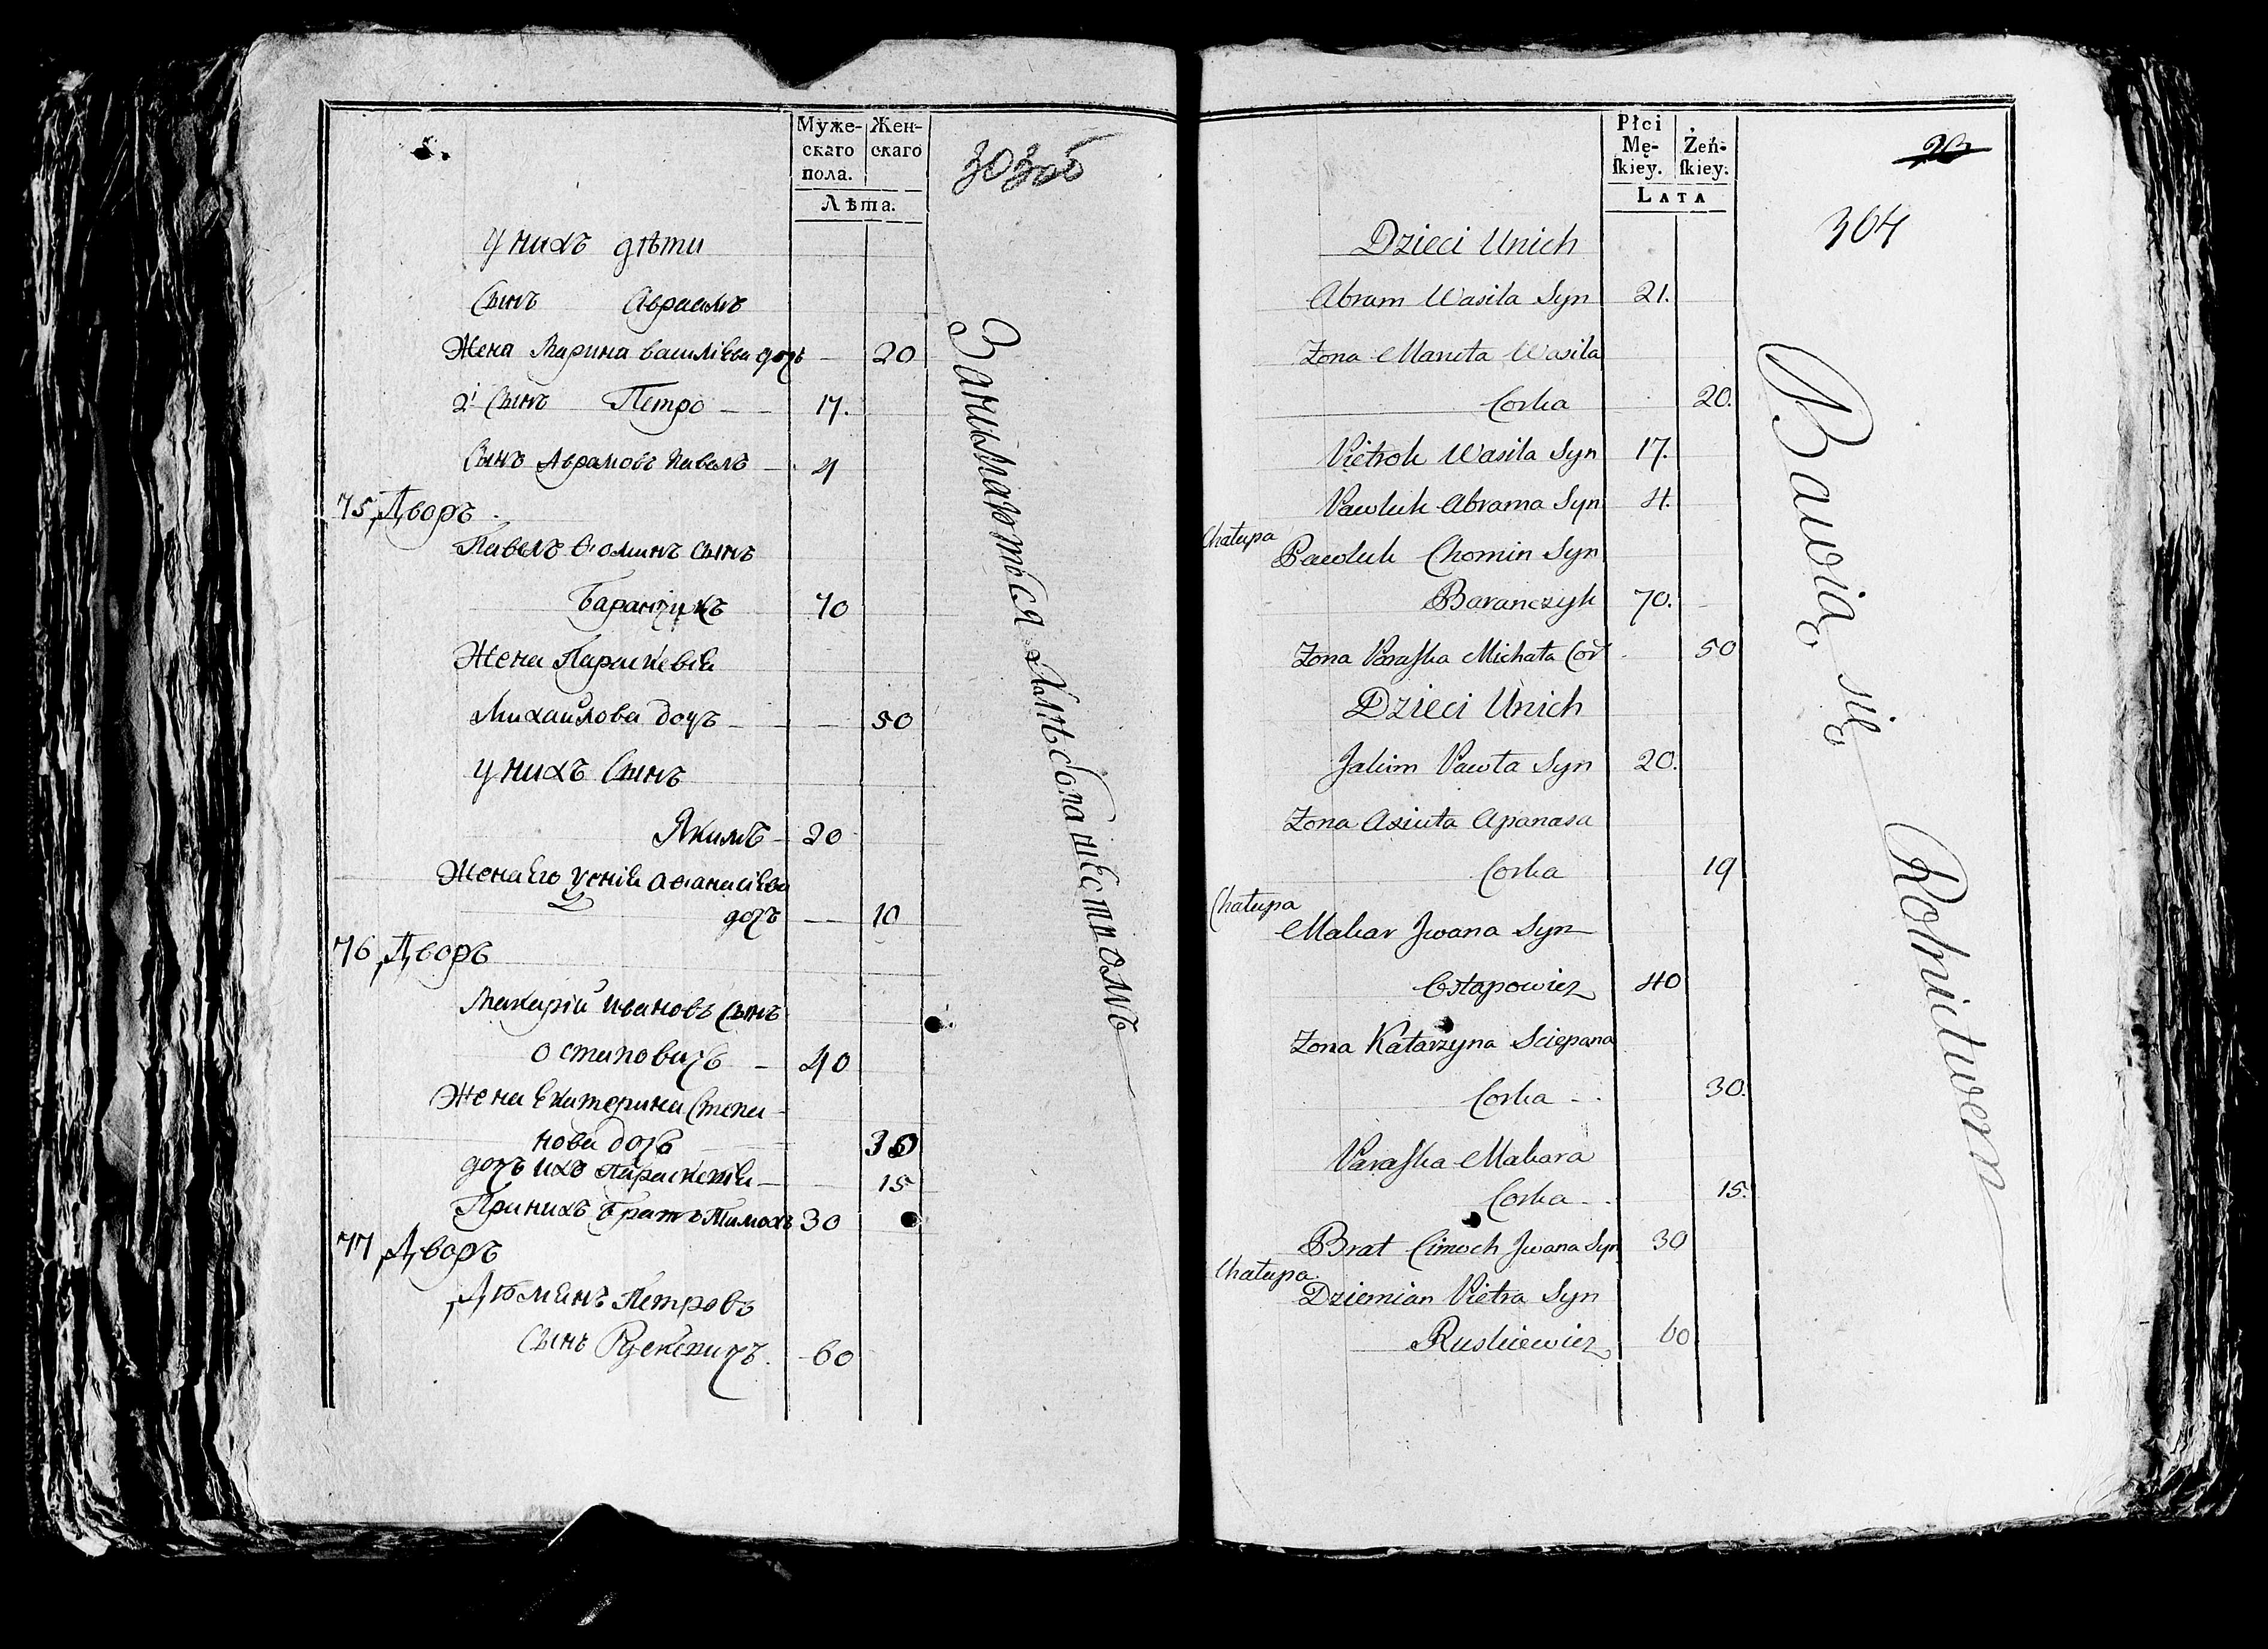 Муже-
скаго
пола.
Жен-
скаго
Лѣта.
303об
у нихъ дѣти
Сынъ Авраамъ
Жена Марина василіева дочь — 20
2й Сынъ Петро — 17.
Сынъ Аврамовъ Павелъ — 4
75 Дворъ
Павелъ Ѳоминъ Сынъ
Баранчукъ 70
Жена Параскевія
Михайлова дочъ — — 50
у нихъ Сынъ
Якимъ — 20
Жена Его Ѹснія Аѳанасіева
дочъ — 10
76 Дворъ
Макарій Ивановъ Сынъ
Остаповичъ — 40
Жена Екатерина Степа-
нова дочь 30
дочъ ихъ Параскевія — 15
При нихъ братъ Тимохъ 30
77 Дворъ
Дѣмянъ Петровъ
Сынъ Рускевичъ. 60
Занимаются хлѣбопашествомъ
Płci
Mę-
ſkiey.
Żeń-
ſkiey.
LATA
23
304
Dzieci Unich
Abram Wasila Syn 21.
Zona Maruta Wasila
Corka 20.
Pietrok Wasila Syn 17.
Pawluk Abrama Syn 4.
Chałupa
Pawluk Chomin Syn
Baranczyk 70.
Zona Paraſka Michała Cor 50
Dzieci Unich
Jakim Pawła Syn 20.
Zona Axiuta Apanasa
Corka 19
Chałupa
Makar Jwana Syn
Ostapowicz 40
Zona Katarzyna Sciepana
Corka - . 30.
Paraſka Makara
Corka - . 15.
Brat Cimoch Jwana Syn 30
Chałupa.
Dziemian Pietra Syn
Ruskiewicz 60
Bawią się Rolnictwem